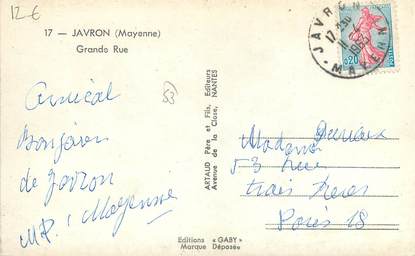 12 €
17 — JAVRON (Mayenne)
Grande Rue
Amical
Bonjour
de Javron
Mayenne
53
Editeurs
NANTES
ARTAUD Père et Fils,
Avenue de la Close,
JAVRON
17 H30
1963
MAYENNE
0,20
Madame
53 rue
trois freres
Paris 18
Editions « GABY »
Marque Déposée